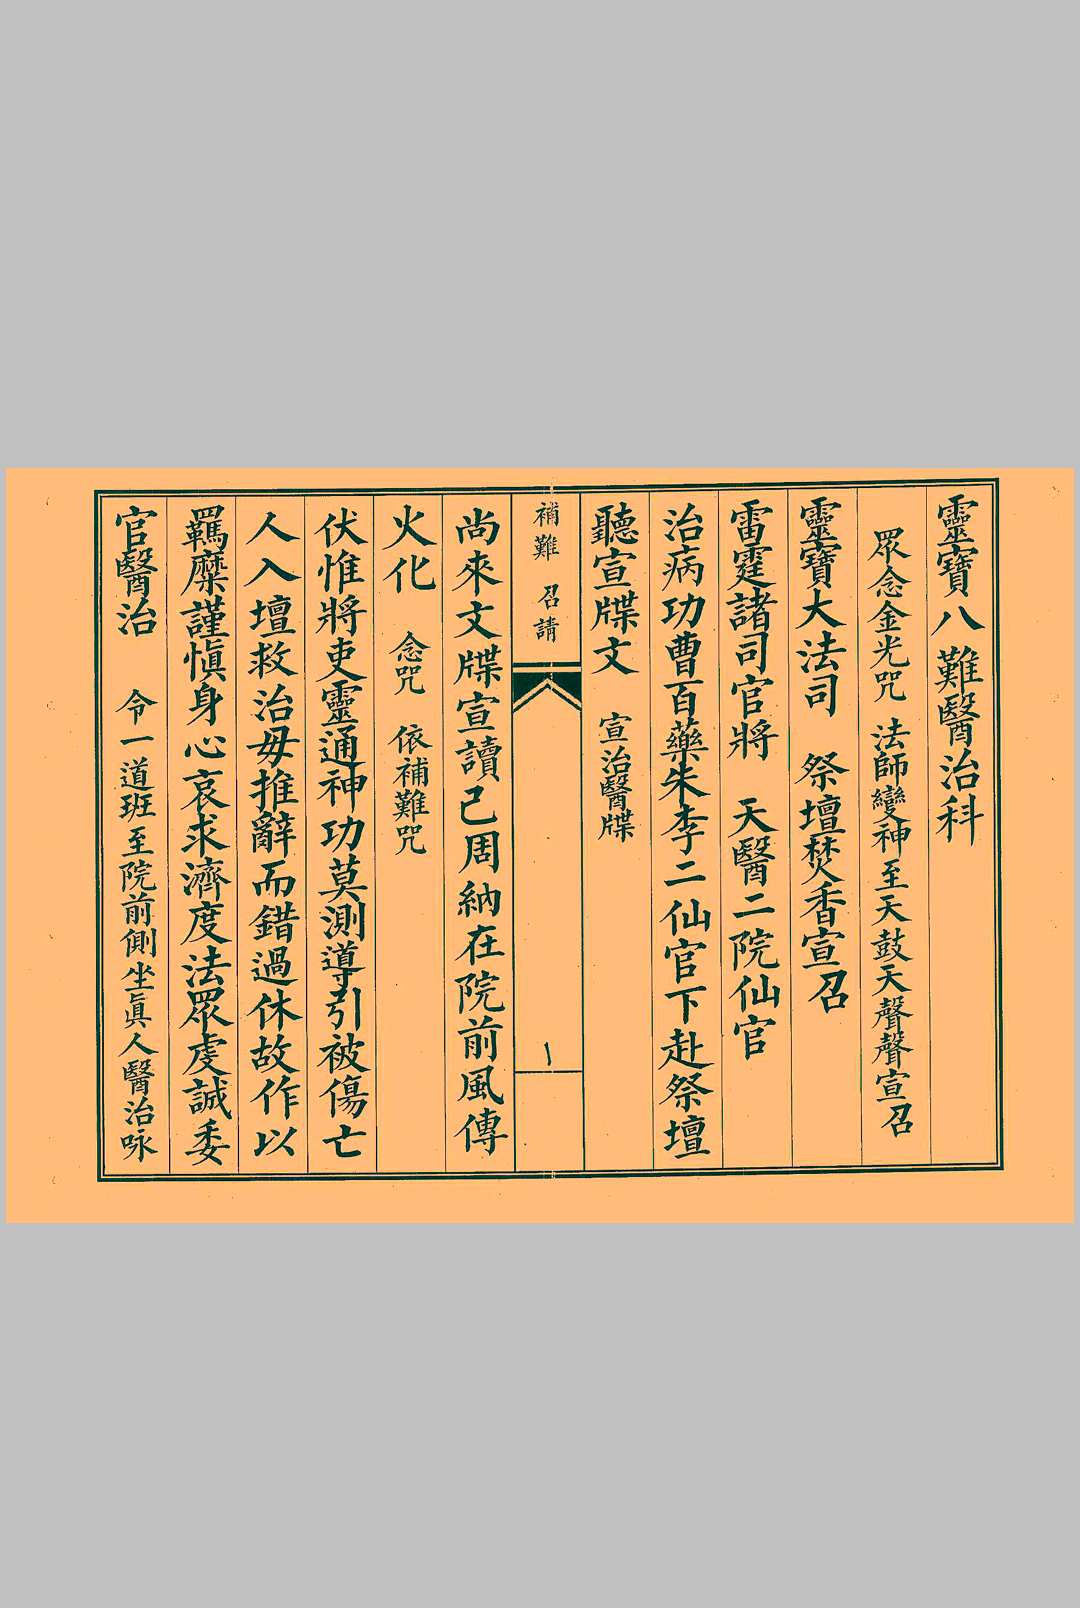 靈寶八難醫治科
眾念金光咒 法師變神至天鼓天聲聲宣召
靈寶大法司 祭壇焚香宣召
雷霆諸司官將 天醫二院仙官
治病功曹百藥朱李二仙官下赴祭壇
聽宣牒文 宣治醫牒
補難 召請
尚來文牒宣讀已周納在院前風傳
火化 念咒 依補難咒
伏惟將吏靈通神功莫測導引被傷亡
人入壇救治毋推辭而錯過休故作以
羈縻謹愼身心哀求濟度法眾虔誠委
官醫治 令一道班至院前側坐眞人醫治咏